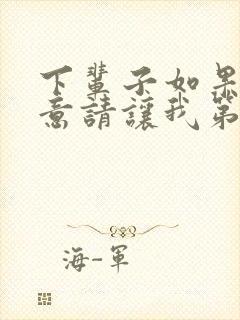 下輩子如果
意請讓我第
海-軍